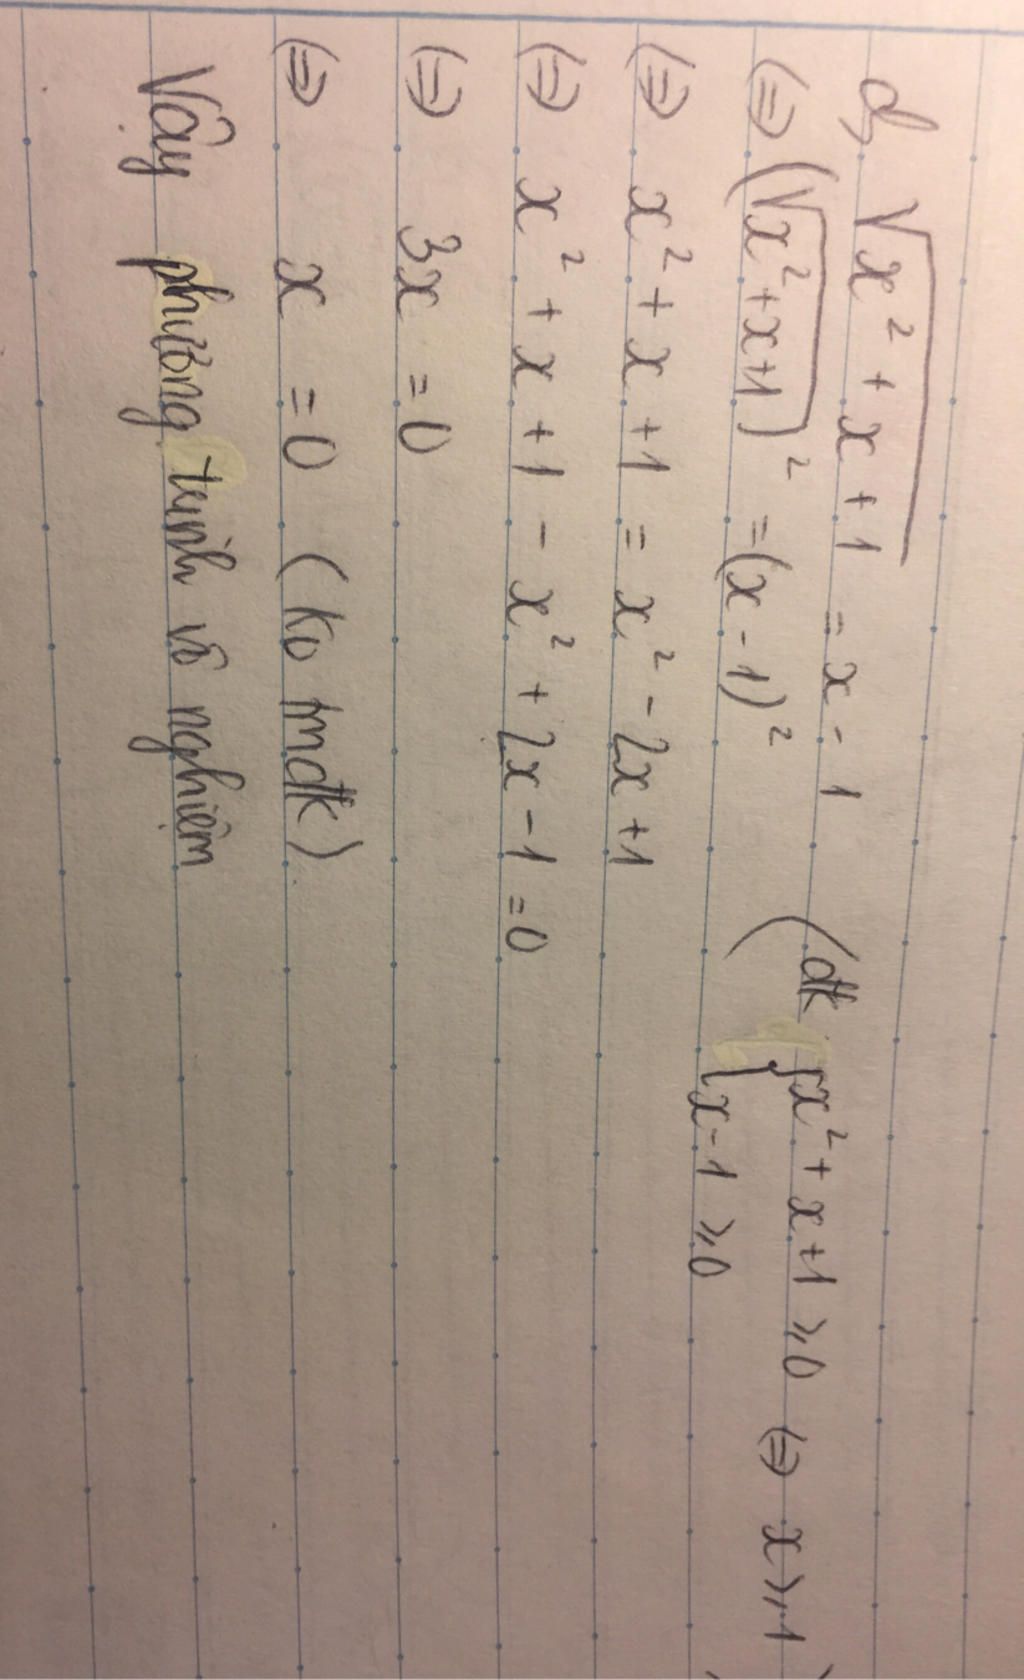 d, √(x² + x + 1) = x - 1 (đk { x² + x + 1 ⩾ 0 ⇔ x ⩾ 1)
{ x - 1 ⩾ 0
(⇒) (√(x² + x + 1))² = (x - 1)²
(⇒) x² + x + 1 = x² - 2x + 1
(⇒) x² + x + 1 - x² + 2x - 1 = 0
(⇒) 3x = 0
(⇒) x = 0 (ko tmđk)
Vậy phương trình vô nghiệm